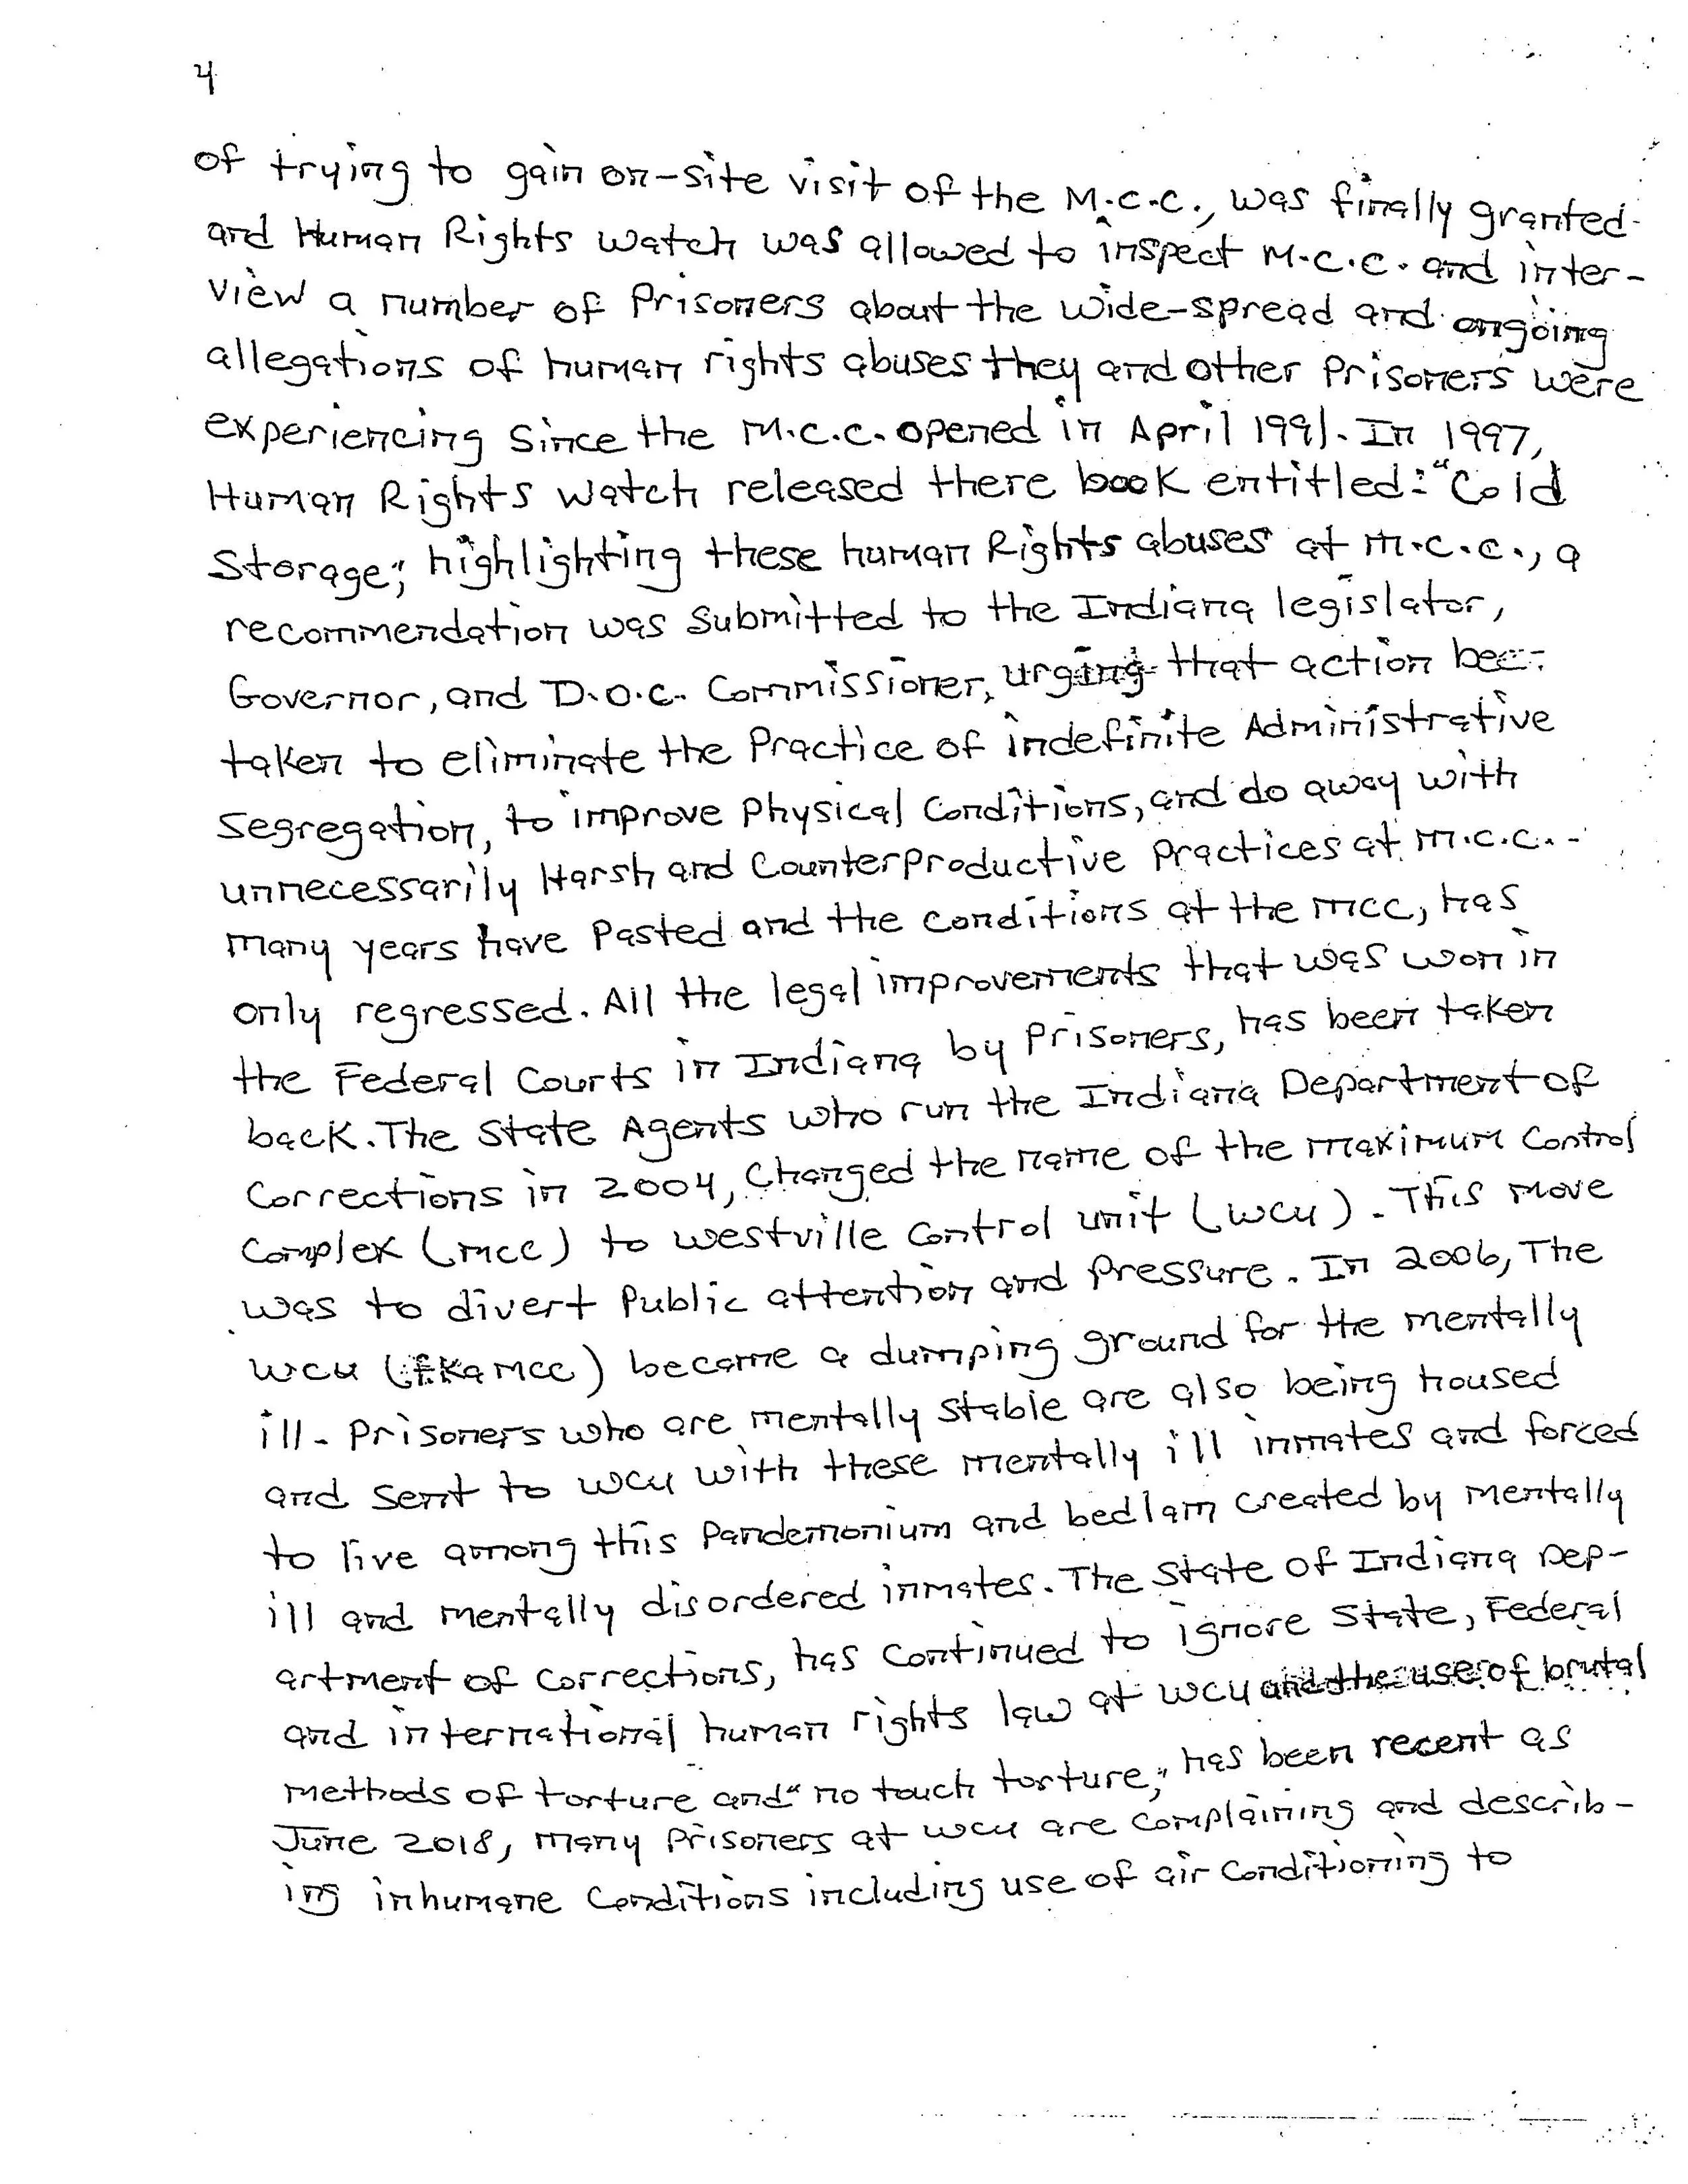 4
of trying to gain on-site visit of the M.C.C., was finally granted
and Human Rights Watch was allowed to inspect M.C.C. and inter-
view a number of Prisoners about the wide-spread and ongoing
allegations of human rights abuses they and other Prisoners were
experiencing Since the M.C.C. opened in April 1991. In 1997,
Human Rights Watch released there book entitled: "Cold
Storage," highlighting these human Rights abuses at M.C.C., a
recommendation was Submitted to the Indiana legislator,
Governor, and D.O.C. Commissioner, urging that action bee
taken to eliminate the Practice of indefinite Administrative
Segregation, to improve Physical Conditions, and do away with
unnecessarily Harsh and Counterproductive Practices at M.C.C. -
many years have Pasted and the conditions at the MCC, has
only regressed. All the legal improvements that was won in
the Federal Courts in Indiana by Prisoners, has been taken
back. The State Agents who run the Indiana Department of
Corrections in 2004, Changed the name of the maximum Control
Complex (MCC) to Westville Control unit (WCU). This move
was to divert Public attention and Pressure. In 2006, The
WCU (FKA MCC) became a dumping ground for the mentally
ill. Prisoners who are mentally Stable are also being housed
and Sent to WCU with these mentally ill inmates and forced
to live among this Pandemonium and bedlam created by mentally
ill and mentally disordered inmates. The State of Indiana Dep-
artment of Corrections, has Continued to ignore State, Federal
and international human rights law at WCU and the use of brutal
methods of torture and "no touch torture," has been recent as
June 2018, many Prisoners at WCU are Complaining and describ-
ing inhumane Conditions including use of air Conditioning to